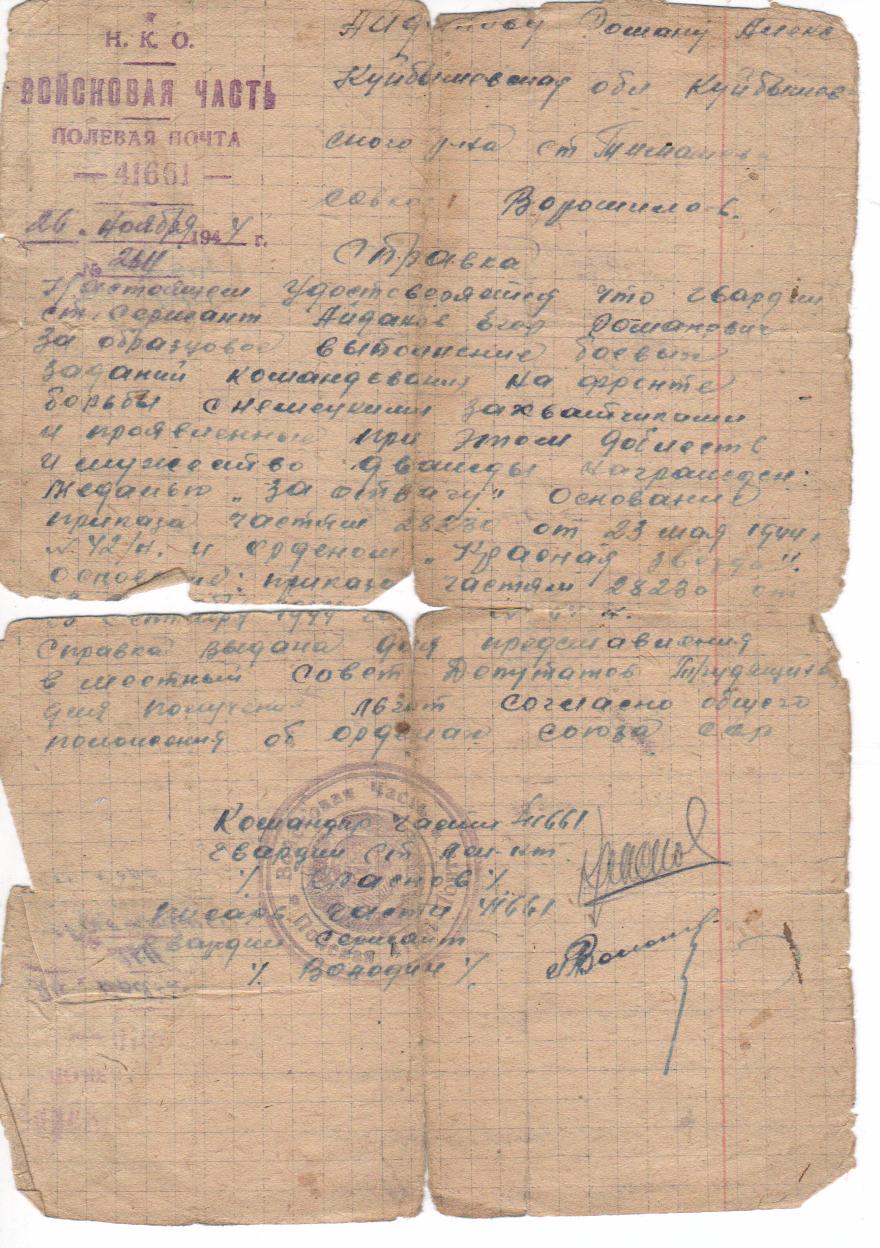 Н. К. О.
ВОЙСКОВАЯ ЧАСТЬ
ПОЛЕВАЯ ПОЧТА
— 41661 —
26 ноября 1944 г.
№ 2611
Айдакову Роману Алекс
Куйбышевская обл Куйбышев
ского р-на ст Тимашево
совхоз Ворошилов.
Справка
Настоящем удостоверяется что гвардии
ст. сержант Айдаков Егор Романович
За образцовое выполнение боевых
заданий командования на фронте
борьбы с немецкими захватчиками
и проявленные при этом доблесть
и мужество дважды награжден:
медалью „За отвагу" Основание
приказа частям 28230 от 23 мая 1944,
N 42/н. и орденом „Красная звезда".
основание: приказа частям 28230 от
сентября 1944 н.
Справка выдана для представления
в местный совет Депутатов Трудящихся
для получения льгот согласно общего
положения об орденах союза сср
Командир части 41661
гвардии ст л-нт
/. Краснов /.
Писарь части 41661
гвардии сержант
/. Володин /.
Войсковая Часть
Полевая